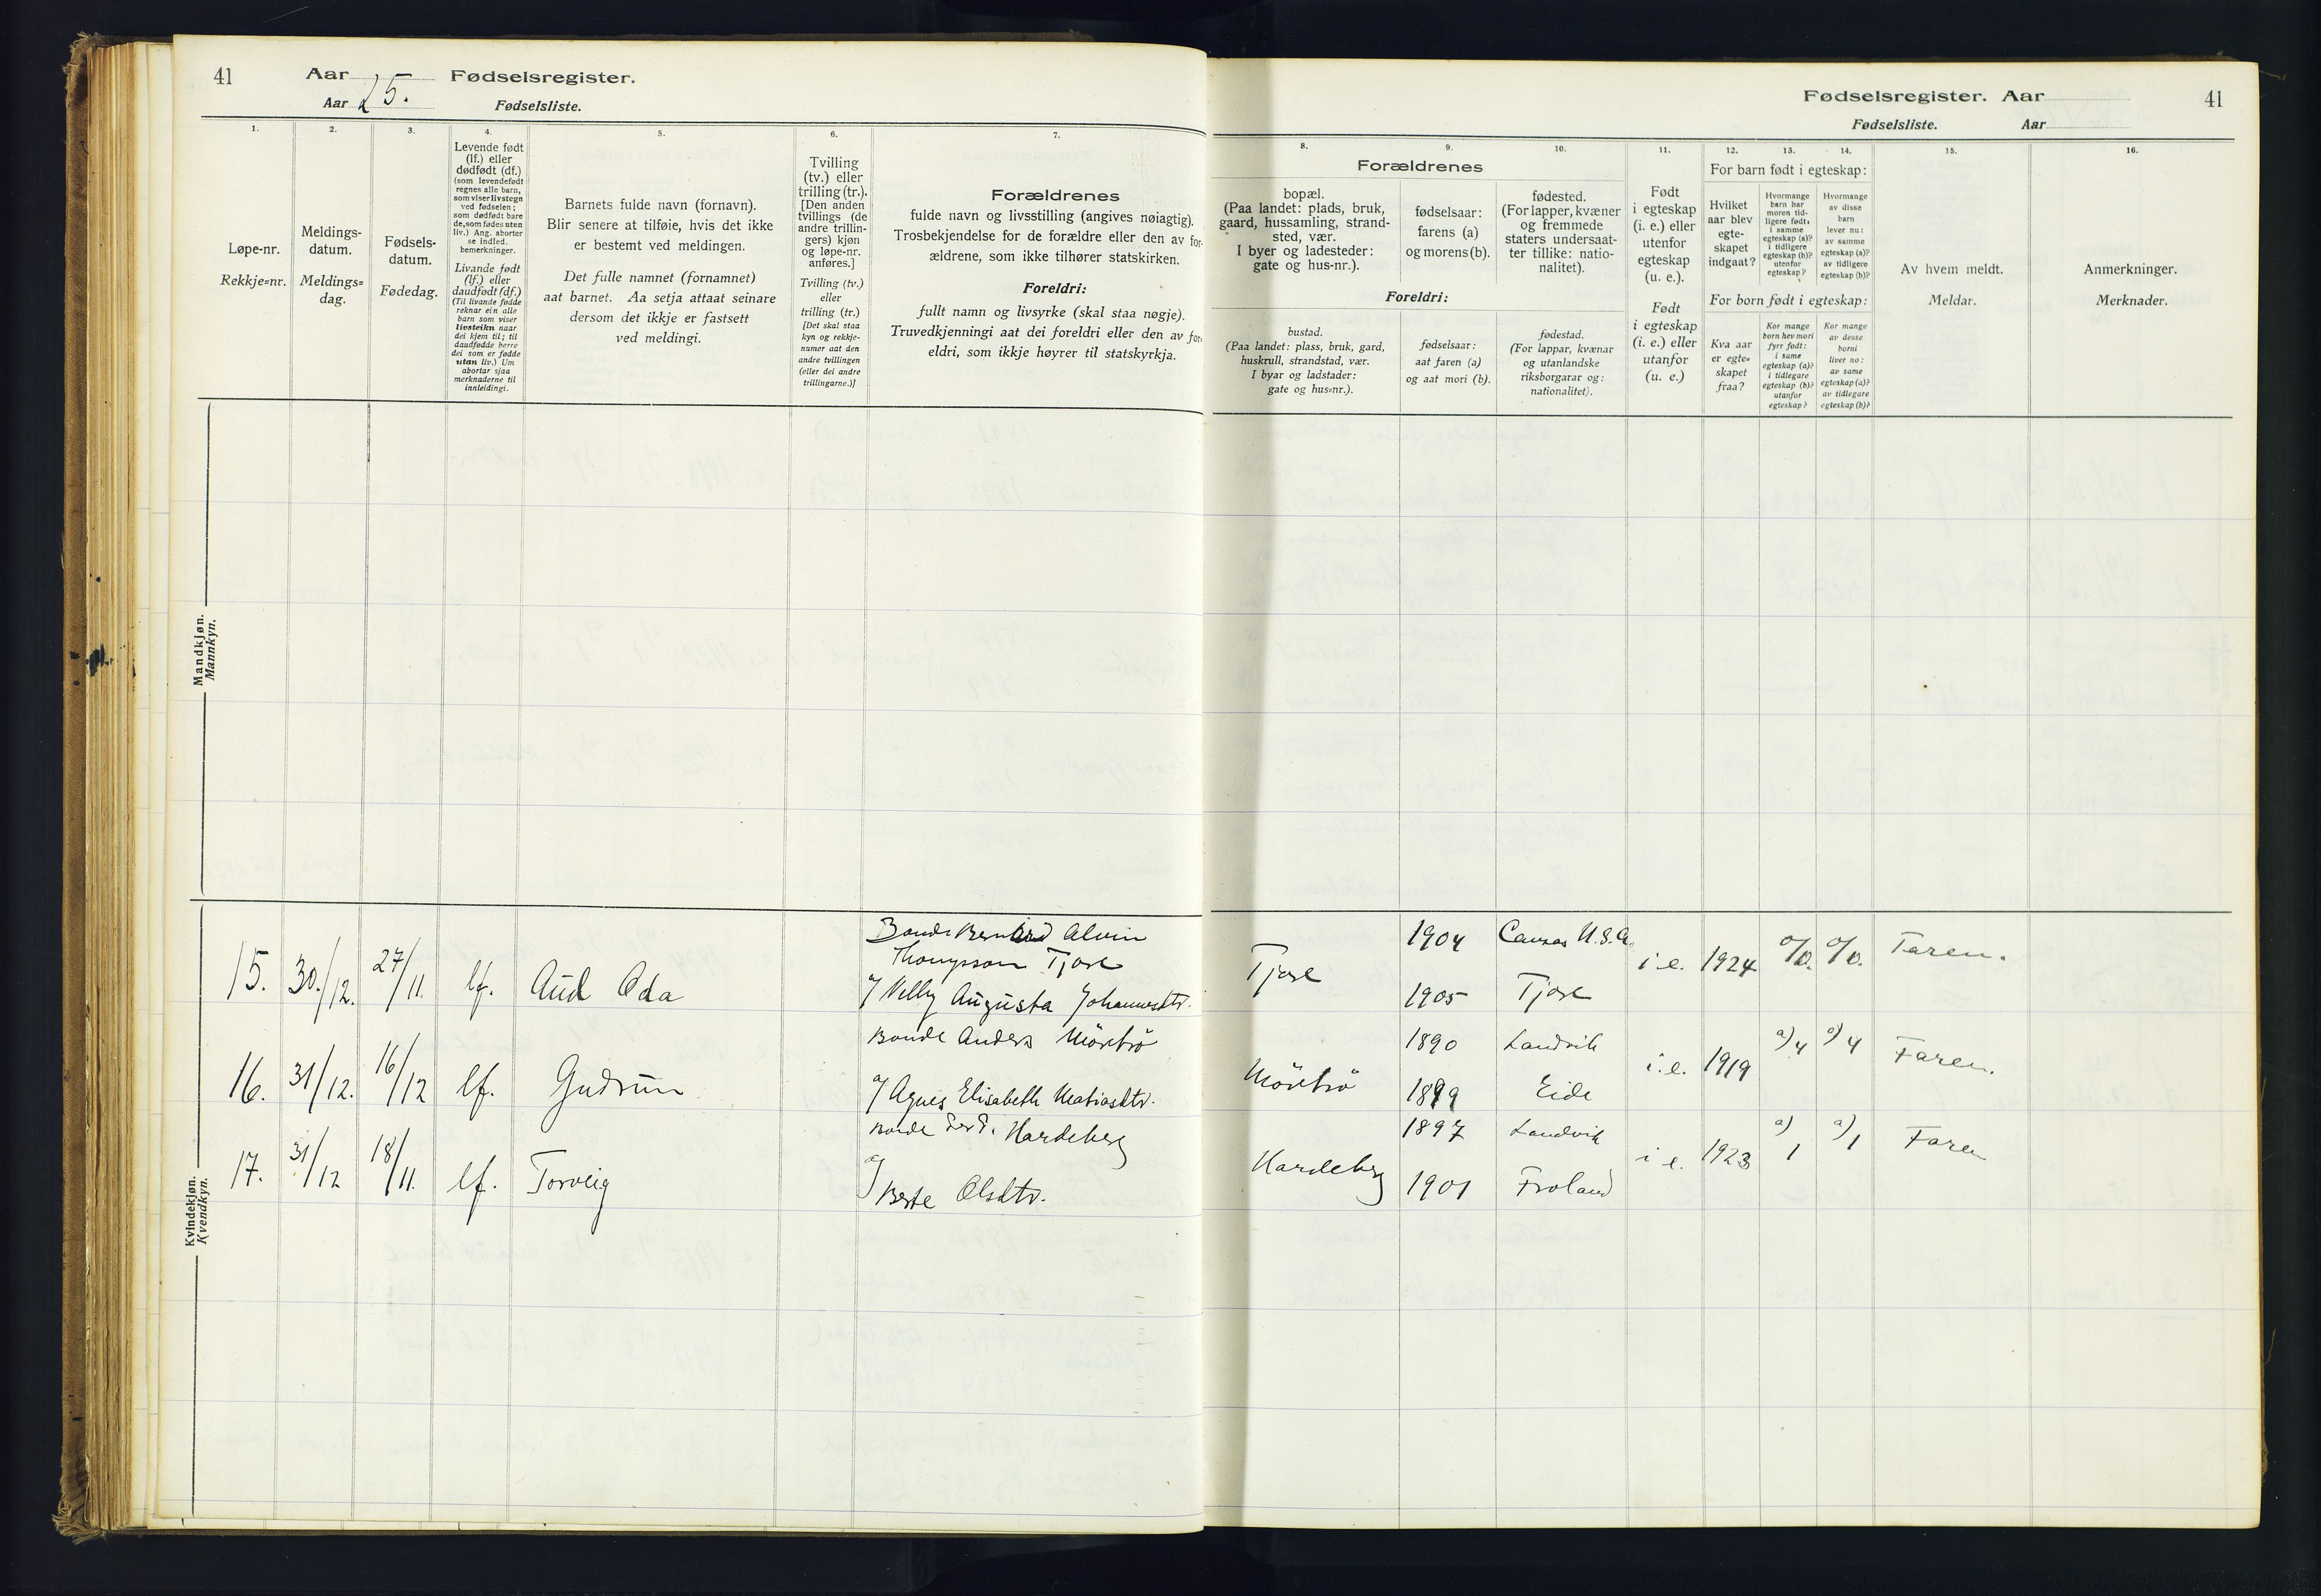 41 Aar 25. Fødselsregister.
Aar Fødselsliste.
Fødselsregister. Aar 41
Fødselsliste. Aar
1.
Løpe-nr.
Rekkje-nr.
2.
Meldings-
datum.
Meldings-
dag.
3.
Fødsels-
datum.
Fødedag.
4.
Levende født
(lf.) eller
dødfødt (df.)
(som levendefødt
regnes alle barn,
som viser livstegn
ved fødselen;
som dødfødt bare
de, som fødes uten
liv.) Ang. aborter
se indled.
bemerkninger.
Livande født
(lf.) eller
daudfødt (df.)
(Til livande fødde
reknar ein alle
barn som viser
livsteikn naar
dei kjem til; til
daudfødde berre
dei som er fødde
utan liv.) Um
abortar sjaa
merknaderne til
innleidingi.
5.
Barnets fulde navn (fornavn).
Blir senere at tilføie, hvis det ikke
er bestemt ved meldingen.
Det fulle namnet (fornamnet)
aat barnet. Aa setja attaat seinare
dersom det ikkje er fastsett
ved meldingi.
6.
Tvilling
(tv.) eller
trilling (tr.).
[Den anden
tvillings (de
andre trillin-
gers) kjøn
og løpe-nr.
anføres.]
Tvilling (tv.)
eller
trilling (tr.)
[Det skal staa
kyn og rekkje-
numer aat den
andre tvillingen
(eller dei andre
trillingarne.)]
7.
Forældrenes
fulde navn og livsstilling (angives nøiagtig).
Trosbekjendelse for de forældre eller den av for-
ældrene, som ikke tilhører statskirken.
Foreldri:
fullt namn og livsyrke (skal staa nøgje).
Truvedkjenningi aat dei foreldri eller den av for-
eldri, som ikkje høyrer til statskyrkja.
8. 9. 10.
Forældrenes
bopæl.
(Paa landet: plads, bruk,
gaard, hussamling, strand-
sted, vær.
I byer og ladesteder:
gate og hus-nr.).
fødselsaar:
farens (a)
og morens (b).
fødested.
(For lapper, kvæner
og fremmede
staters undersaat-
ter tillike: natio-
nalitet).
Foreldri:
bustad.
(Paa landet: plass, bruk, gard,
huskrull, strandstad, vær.
I byar og ladstader:
gate og hus-nr.).
fødselsaar:
aat faren (a)
og aat mori (b).
fødestad.
(For lappar, kvænar
og utanlandske
riksborgarar og:
nationalitet).
11.
Født
i egteskap
(i. e.) eller
utenfor
egteskap
(u. e.).
Født
i egteskap
(i. e.) eller
utanfor
(u. e.)
12. 13. 14.
For barn født i egteskap:
Hvilket
aar blev
egte-
skapet
indgaat?
Hvormange
barn har
moren tid-
ligere født:
i samme
egteskap (a)?
i tidligere
egteskap (b)?
utenfor
egteskap?
Hvormange
av disse
barn
lever nu:
av samme
egteskap (a)?
av tidligere
egteskap (b)?
For born født i egteskap:
Kva aar
er egte-
skapet
fraa?
Kor mange
born hev mori
fyrr født:
i same
egteskap (a)?
i tidlegare
egteskap (b)?
utanfor
egteskap?
Kor mange
av desse
borni
liver no:
av same
egteskap (a)?
av tidlegare
egteskap (b)?
15.
Av hvem meldt.
Meldar.
16.
Anmerkninger.
Merknader.
Mandkjøn.
Mannkyn.
Kvindekjøn.
Kvendkyn.
Bonde Bernhard Alvin
Thompsson Tjore
15. 30./12. 27/11. lf. Aud Oda
og Nelly Augusta Johannesdtr.
Tjore 1904 Canzas U.S.A. i. e. 1924 0/0. 0/0. Faren.
1905 Tjore
Bonde Anders Möretrö
16. 31/12. 16/12 lf. Gudrun
og Agnes Elisabeth Matiasdtr.
Möretrö 1890 Landvik i. e. 1919 a) 4 a) 4 Faren.
1899 Eide
Bonde Ferd. Hardeberg
17. 31/12 18/11. lf. Torveig
og
Berte Olsdtr.
Hardeberg 1897 Landvik i e. 1923 a) 1 a) 1 Faren
1901 Froland